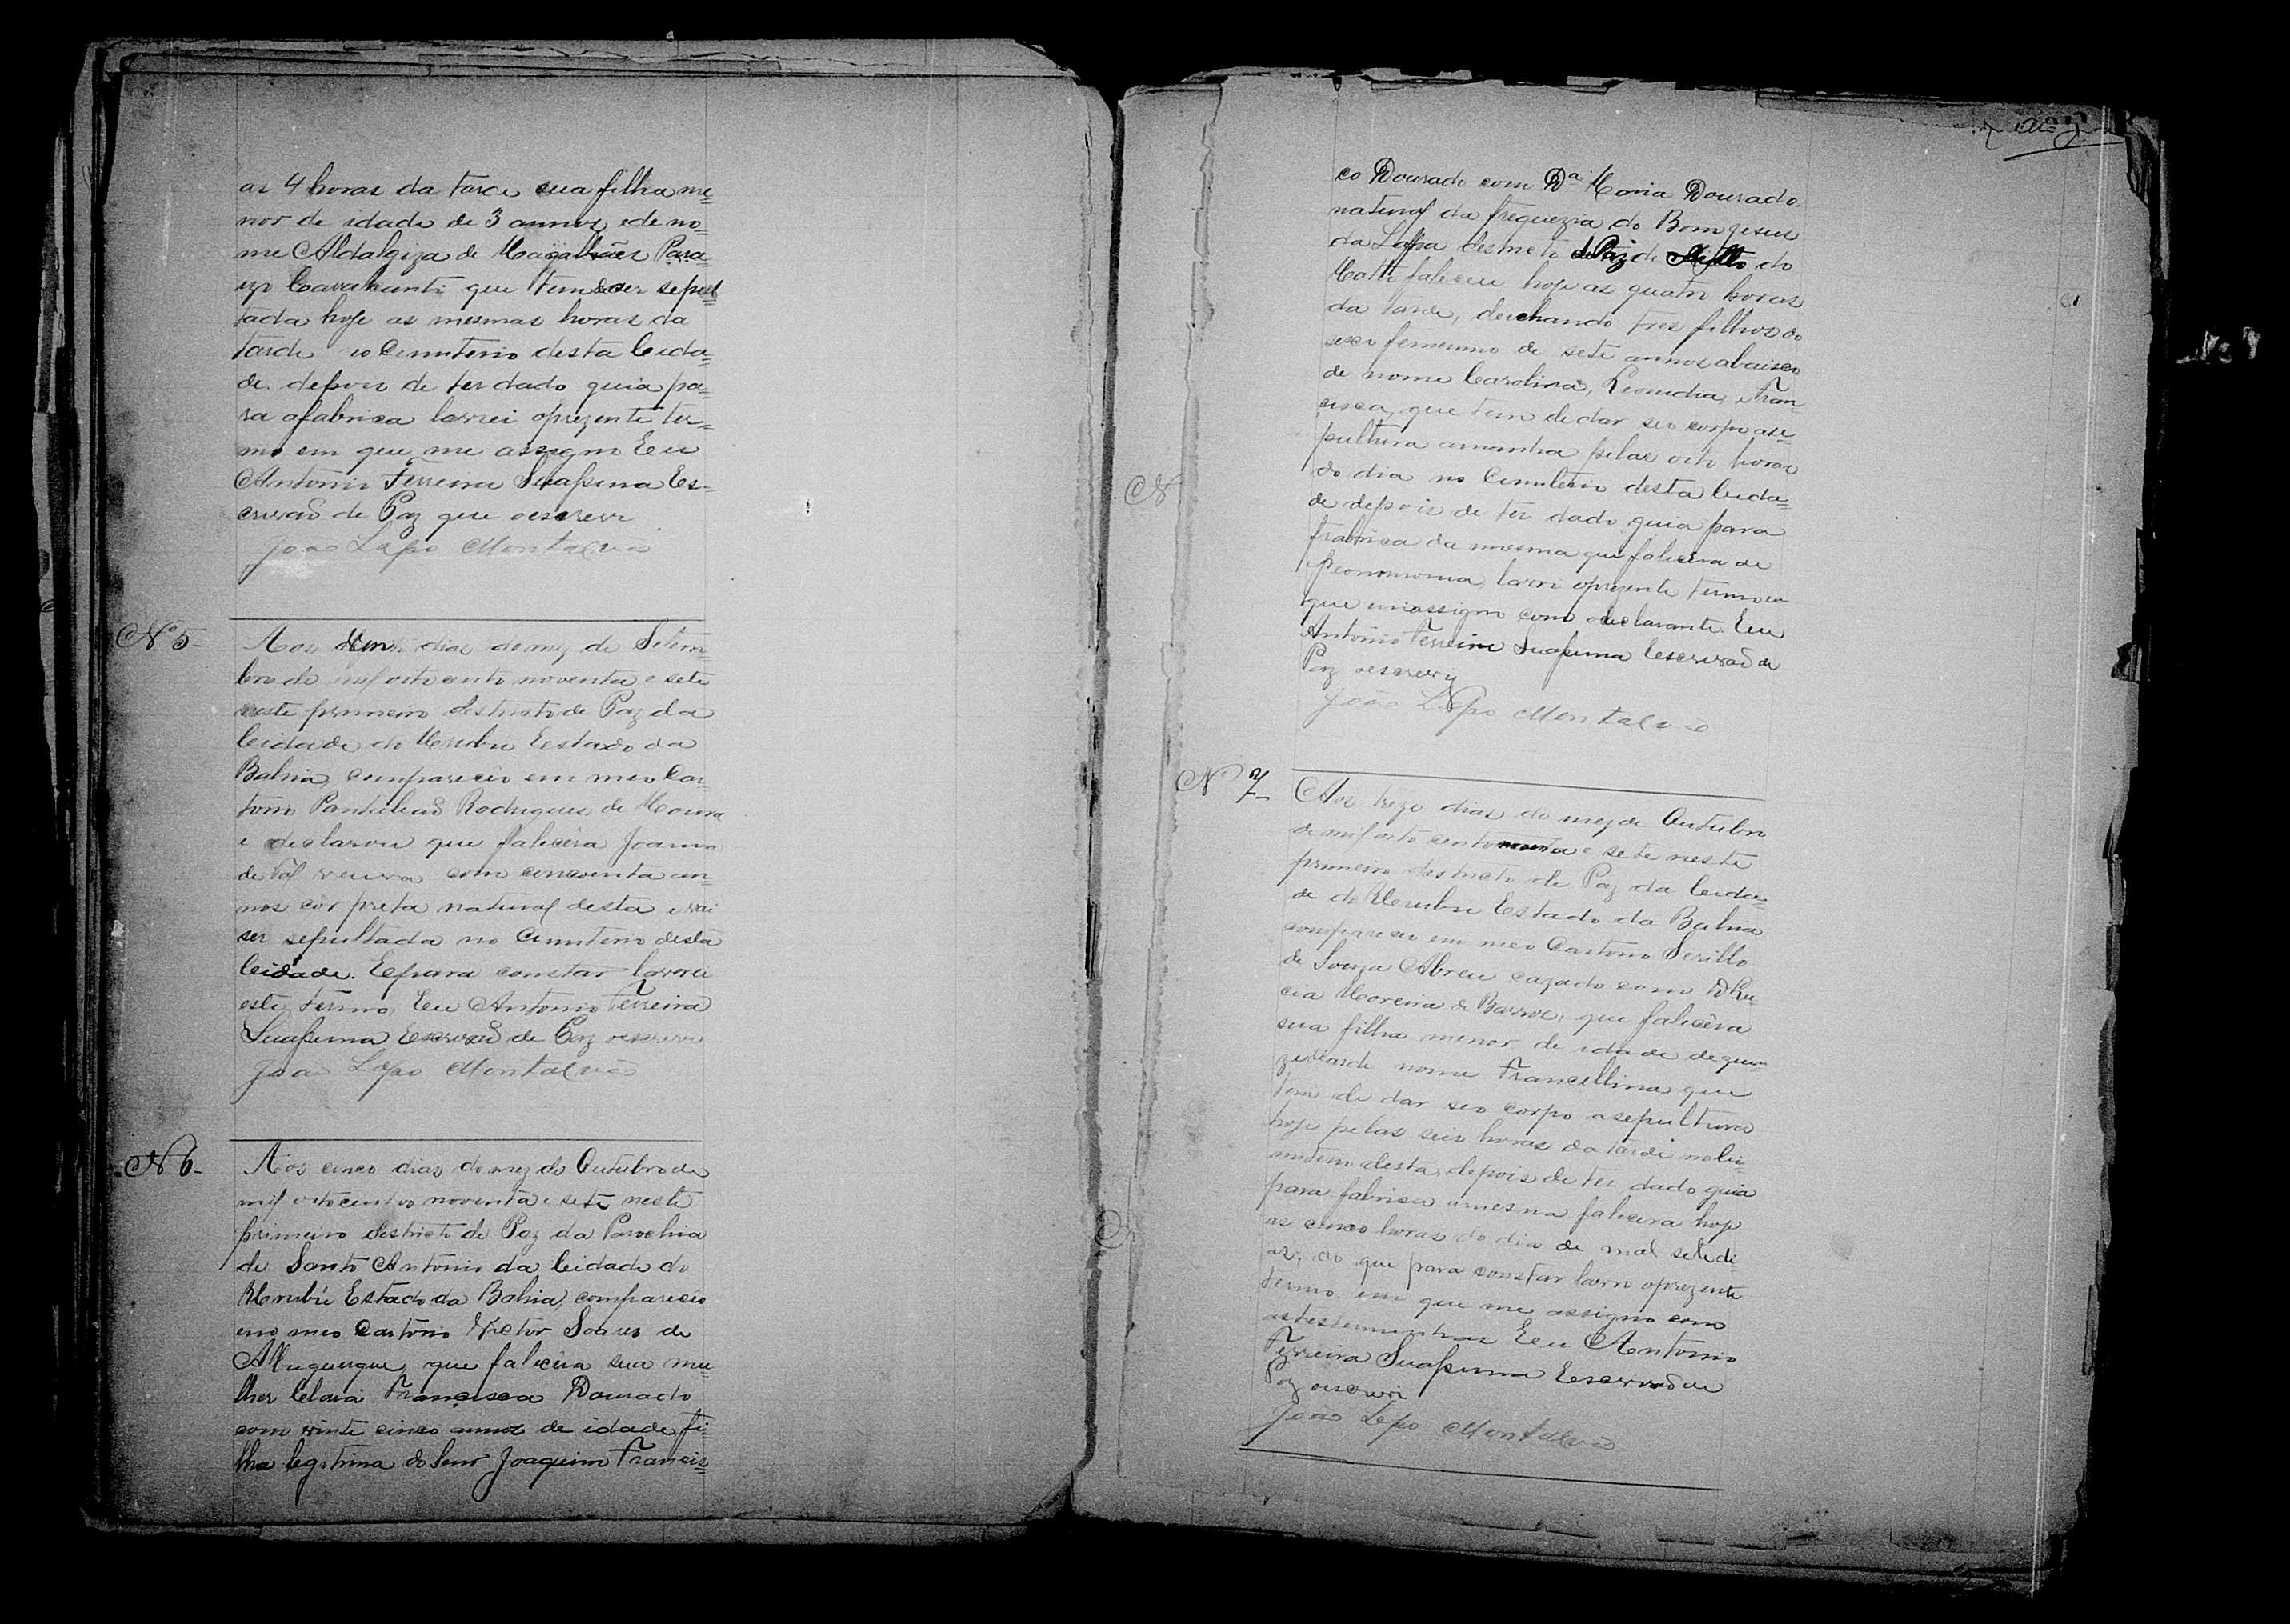 as 4 horas da tarde sua filha me=
nor de idade de 3 annos, e de no=
me Aldalgiza de Magalhães Para=
izo Cavalcanti que tem de ser sepul=
tada hoje as mesmas horas da
tarde no Cimiterio desta Cida=
de depois de ter dado guia pa=
ra a fabrica lavrei o prezente ter=
mo em que me assigno Eu
Antonio Ferreira Suapuna Es=
crivão de Paz que o escrevi
João Lapo Montalvão
Nº 5-
Aos dias do mez de Setem=
bro de mil oito cento noventa e sete
neste primeiro destricto de Paz da
Cidade do Urubu Estado da
Bahia comparecêo em meo Car
torio Pantalião Rodrigues de Moura
e declarou que falicêra Joanna
de Tal viuva com cincoenta an=
nos côr preta natural desta e vai
ser sepultada no Cimiterio desta
Cidade. E para constar lavrei
este termo, Eu Antonio Ferreira
Suapuna Escrivão de Paz o escrevi
João Lapo Montalvão
Nº 6-
Aos cinco dias do mez de Outubro de
mil oitocentos noventa e sete neste
primeiro destricto de Paz da Parochia
de Santo Antonio da Cidade do
Urubú Estado da Bahia, compareceo
em meo Cartorio Victor Soares de
Albuquerque, que falicêra sua mu
lher Clara Francisca Dourado
com vinte cinco annos de idade, fi=
lha legitima do Senr Joaquim Francis=
co Dourado com Dª Maria Dourado
natural da freguezia do Bom Jesus
da Lapa destricto de Paz de do
Matto faleceu hoje as quatro horas
da tarde, deichando tres filhos do
sexo femenino de sete annos abaixo
de nome Carolina, Leonidia, e Fran=
cisca, que tem de dar seo corpo a se=
pultura amanha pelas oito horas
do dia no Cimiterio desta Cida=
de depois de ter dado guia para
frabrica da mesma que falicêra de
Peonomonia, lavrei o prezente termo em
que me assigno com o declarante. Eu
Antonio Ferreira Suapuna Escrivão de
Paz o escrevy
João Lapo Montalvão
N 7-
Aos treze dias do mez de Outubro
de mil oito cento noventa e sete neste
primeiro destricto de Paz da Cida=
de do Urubu Estado da Bahia
compareceo em meo Cartorio Serillo
de Souza Abreu cazado com D Lu
cia Moreira de Barros, que falicêra
sua filha menor de idade de quin
ze dias de nome Francellina que
tem de dar seo corpo a sepultura
hoje pelas seis horas da tarde no Ci=
miterio desta, depois de ter dado guia
para fabrica a mesma falicera hoje
as cinco horas do dia de mal sete di
as, do que para constar lavro o prezente
termo em que me assigno com
as testemunhas Eu Antonio
Ferreira Suapuna Escrivão de
Paz o escrevi
João Lapo Montalvão